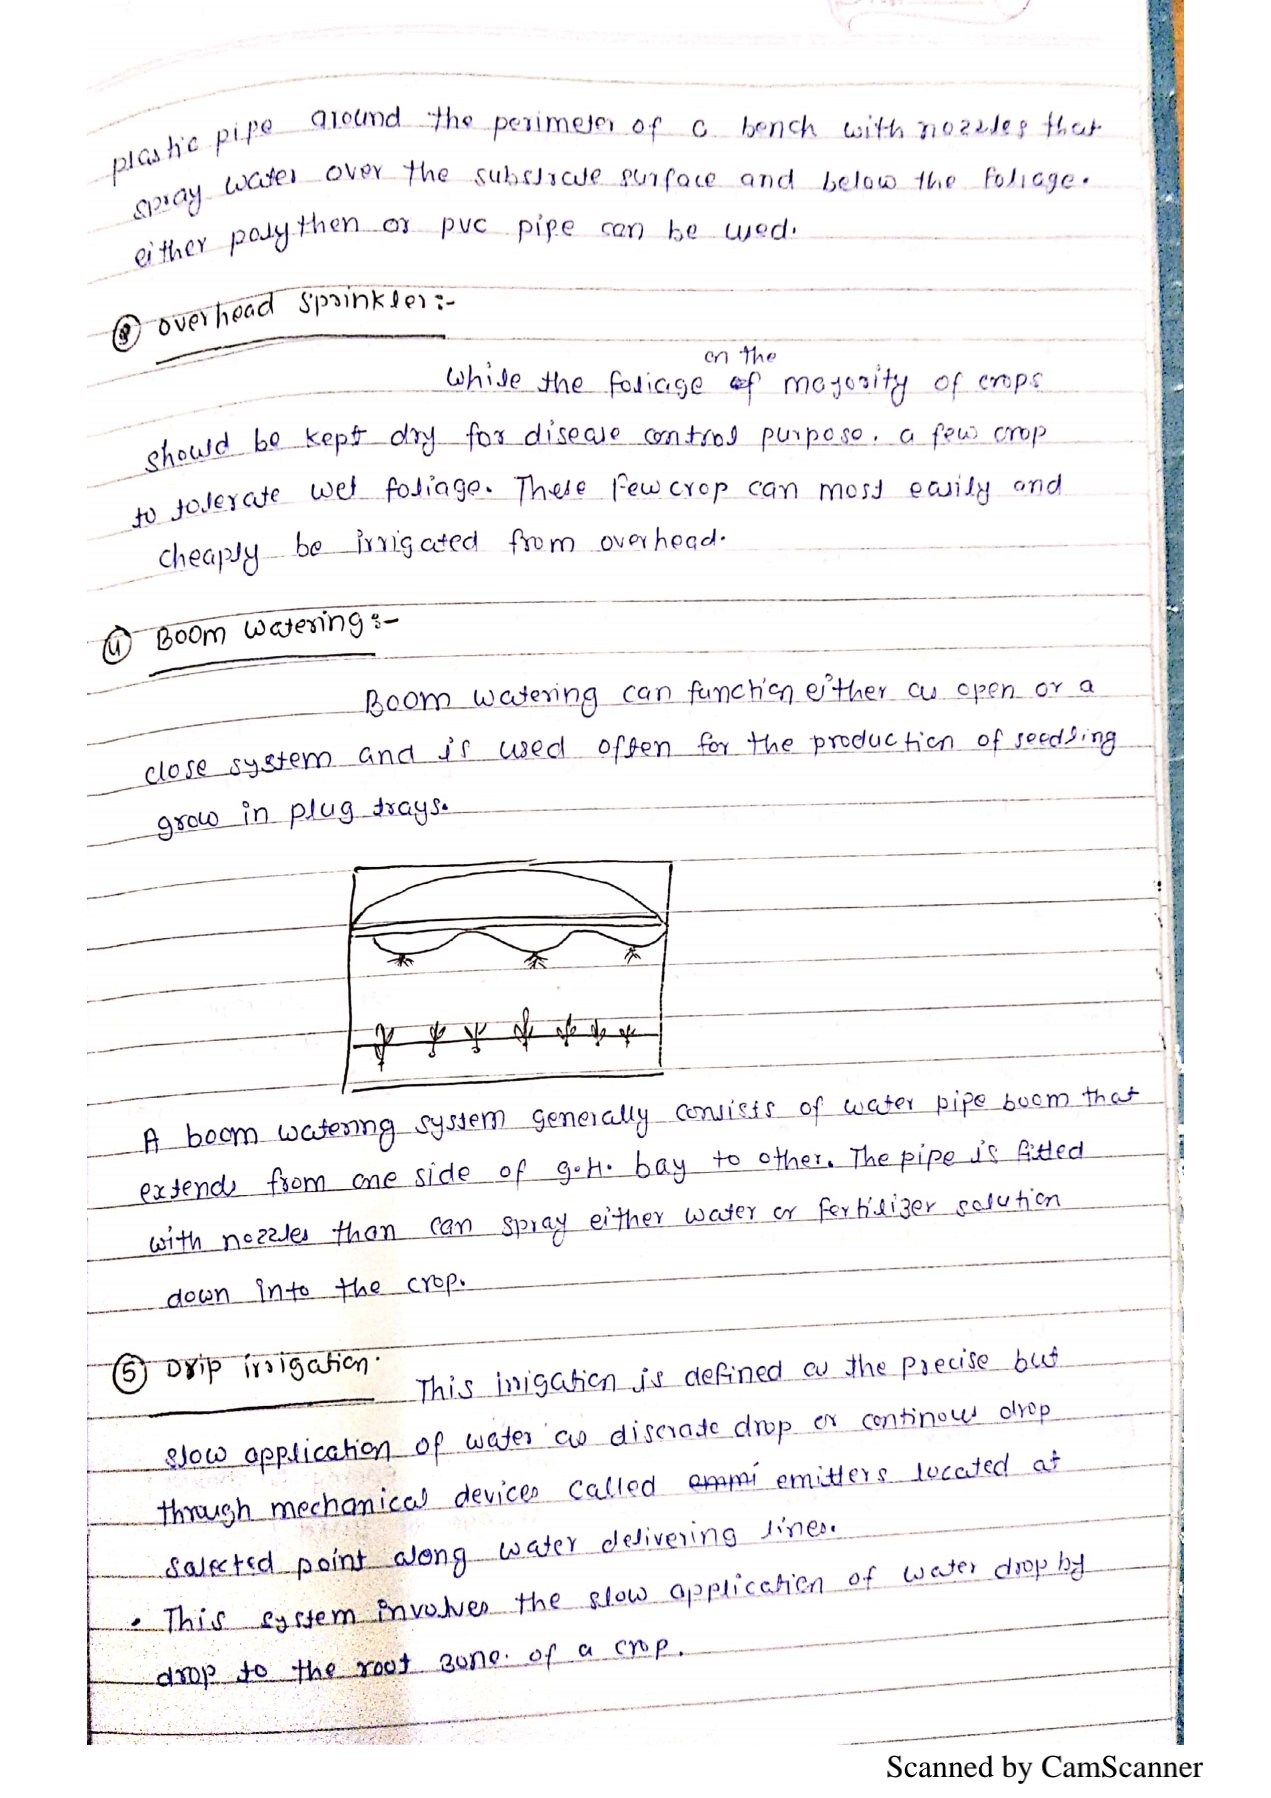 plastic pipe around the perimeter of a bench with nozzles that
spray water over the substrate surface and below the foliage.
either polythen or pvc pipe can be used.
③ overhead sprinkler:-
on the
While the foliage of majority of crops
should be kept dry for disease control purpose. a few crop
to tolerate wet foliage. These few crop can most easily and
cheaply be irrigated from overhead.
④ Boom watering:-
Boom watering can function either as open or a
close system and is used often for the production of seedling
grow in plug trays.
A boom watering system generally consists of water pipe boom that
extends from one side of g.H. bay to other. The pipe is fitted
with nozzles than can spray either water or fertilizer solution
down into the crop.
⑤ Drip irrigation.
This irrigation is defined as the precise but
slow application of water as discrate drop or continous drop
through mechanical devices called emmi emitters located at
salected point along water delivering lines.
• This system involves the slow application of water drop by
drop to the root zone. of a crop.
Scanned by CamScanner